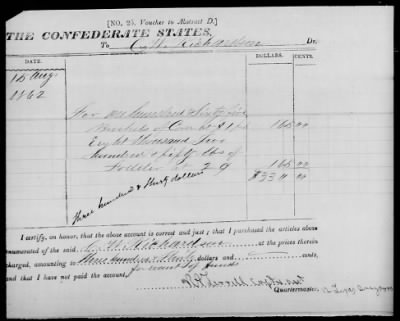 [NO. 25. Voucher to Abstract D.]
THE CONFEDERATE STATES,
To C. W. Richardson Dr.
DATE. DOLLARS. CENTS.
15 Aug
1862
For one hundred & sixty five
bushels of Corn at $1 165 00
Eight thousand two
hundred & fifty lbs of
fodder at 2 165 00
$330 00
three hundred & thirty dollars
I certify, on honor, that the above account is correct and just; that I purchased the articles above
enumerated of the said C. W. Richardson at the prices therein
charged, amounting to three hundred & thirty dollars and cents,
and that I have not paid the account, for want of funds
Capt &
Quartermaster